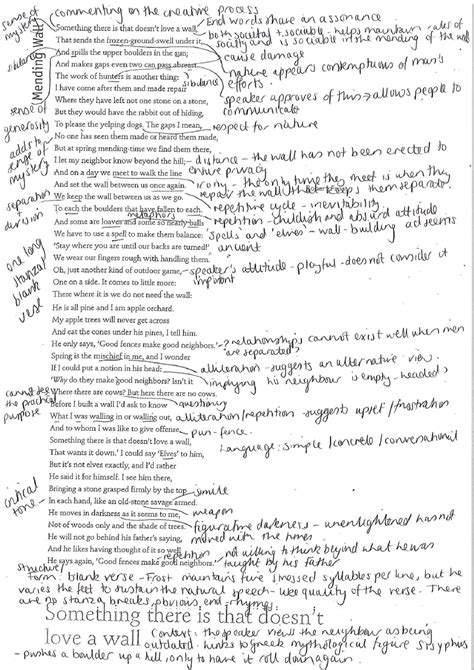 sense of mystery
commenting on the creative process
End words share an assonance
Mending Wall
Something there is that doesn't love a wall,
both societal + sociable - helps maintain rules of
That sends the frozen-ground-swell under it,
society and is sociable in the mending of the wall
And spills the upper boulders in the sun;
cause damage
And makes gaps even two can pass abreast.
nature appears contemptious of man's
sibilance
The work of hunters is another thing:
sibilance
efforts.
I have come after them and made repair
Where they have left not one stone on a stone,
speaker approves of this → allows people to
communicate
But they would have the rabbit out of hiding,
sense of generosity
To please the yelping dogs. The gaps I mean,
respect for nature
No one has seen them made or heard them made,
adds to sense of mystery
But at spring mending-time we find them there,
I let my neighbor know beyond the hill;
- distance - the wall has not been erected to
ensure privacy
And on a day we meet to walk the line
irony - the only time they meet is when they
And set the wall between us once again.
repair the wall that keeps them separate.
separation + division
We keep the wall between us as we go.
To each the boulders that have fallen to each.
repetitive cycle - inevitability
metaphors
And some are loaves and some so nearly balls
repetition - childish and absurd attitude
We have to use a spell to make them balance:
'spells' and 'elves' - wall-building
seems
'Stay where you are until our backs are turned!'
ancient
We wear our fingers rough with handling them.
one long stanza/ blank verse
Oh, just another kind of outdoor game,
- speaker's attitude - playful - does not consider it
One on a side. It comes to little more:
important
There where it is we do not need the wall:
He is all pine and I am apple orchard.
My apple trees will never get across
And eat the cones under his pines, I tell him.
He only says, 'Good fences make good neighbors.'
- ? relationships cannot exist well when men
are separated?
Spring is the mischief in me, and I wonder
If I could put a notion in his head:
alliteration - suggests an alternative view.
'Why do they make good neighbors? Isn't it
implying his neighbour is empty-headed
cannot see the practical purpose
Where there are cows? But here there are no cows.
Before I built a wall I'd ask to know
questioning
What I was walling in or walling out,
alliteration/repetition - suggests upset/frustration
And to whom I was like to give offense.
pun - fence.
Something there is that doesn't love a wall,
Language: simple / concrete / conversational
That wants it down.' I could say 'Elves' to him,
But it's not elves exactly, and I'd rather
He said it for himself. I see him there,
Bringing a stone grasped firmly by the top
simile
critical tone
In each hand, like an old-stone savage armed.
weapon
He moves in darkness as it seems to me,
Not of woods only and the shade of trees.
figurative darkness - unenlightened has not
moved with the times
He will not go behind his father's saying,
And he likes having thought of it so well
repetition
- not willing to think beyond what he was
taught by his father
He says again, 'Good fences make good neighbors.'
Structure/
Form: blank verse - Frost maintains five stressed syllables per line, but he
varies the feet to sustain the natural speech-like quality of the verse. There
are no stanza breaks, obvious end-rhymes.
Something there is that doesn't
love a wall
Context: the speaker views the neighbour as being
outdated. Links to greek mythological figure Sisyphus
- pushes a boulder up a hill, only to have it roll down again.